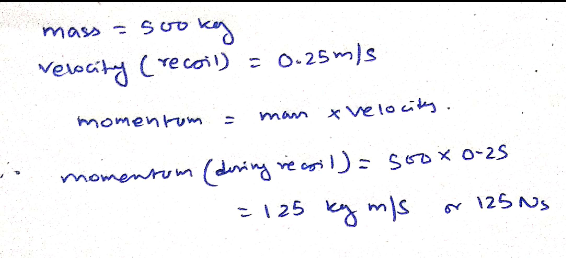 mass = 500 kg
velocity (recoil) = 0.25 m/s
momentum = mass x velocity.
∴ momentum (during recoil) = 500 x 0.25
= 125 kg m/s or 125 Ns